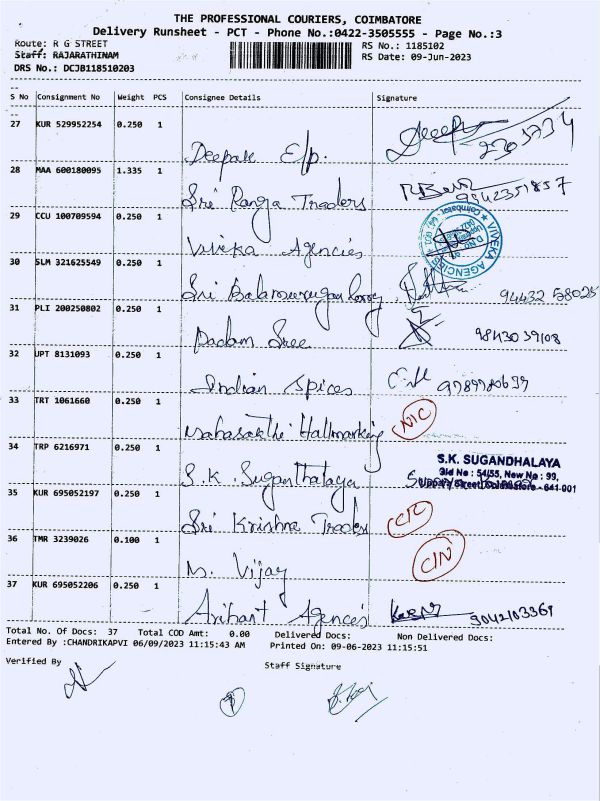 THE PROFESSIONAL COURIERS, COIMBATORE
Delivery Runsheet - PCT - Phone No.:0422-3505555 - Page No.:3
Route: R G STREET RS No.: 1185102
Staff: RAJARATHINAM RS Date: 09-Jun-2023
DRS No.: DCJB118510203
S No Consignment No Weight PCS Consignee Details Signature
27 KUR 529952254 0.250 1
Deepak E/p.
28 MAA 600180095 1.335 1
Sri Ranga Traders 9942351857
29 CCU 100709594 0.250 1
Viveka Agencies
30 SLM 321625549 0.250 1
Sri Balamurugan Lorry 94432 58025
31 PLI 200250802 0.250 1
Padam Sree 9843039108
32 UPT 8131093 0.250 1
Indian Spices
33 TRT 1061660 0.250 1
Mahasakthi Hallmarking NIC
34 TRP 6216971 0.250 1
S.K. SUGANDHALAYA
Old No : 54/55, New No : 99,
S.K. Suganthalaya
35 KUR 695052197 0.250 1
Sri Krishna Traders
36 TMR 3239026 0.100 1
CIN
M. Vijay
37 KUR 695052206 0.250 1
Arihant Agences 9042103361
Total No. Of Docs: 37 Total COD Amt: 0.00 Delivered Docs: Non Delivered Docs:
Entered By :CHANDRIKAPVI 06/09/2023 11:15:43 AM Printed On: 09-06-2023 11:15:51
Verified By Staff Signature